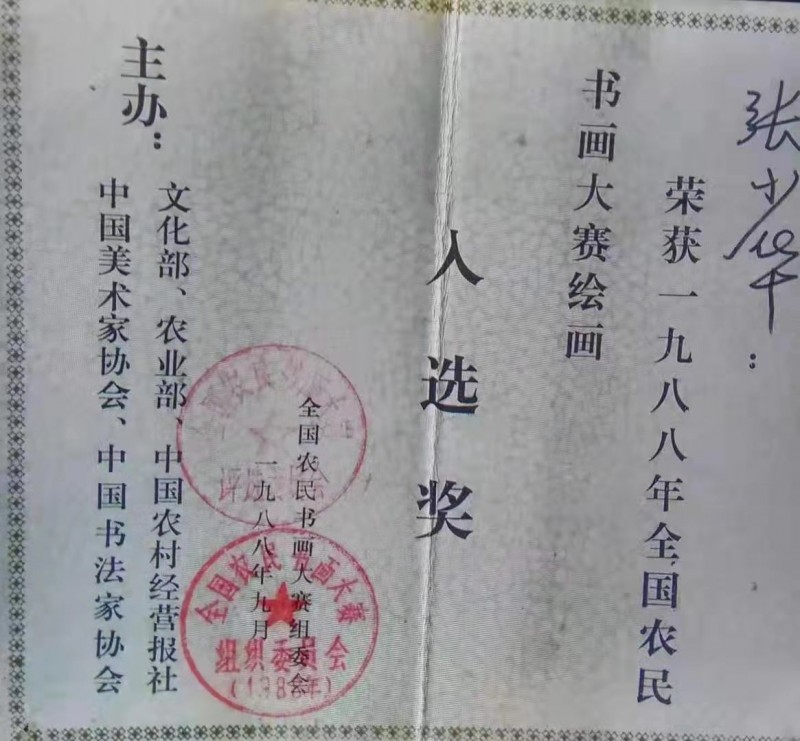 张少华：
荣获一九八八年全国农民
书画大赛绘画
入选奖
全国农民书画大赛组委会
一九八八年九月
全国农民书画大赛
组织委员会
（1988年）
主办：
文化部、农业部、中国农村经营报社
中国美术家协会、中国书法家协会